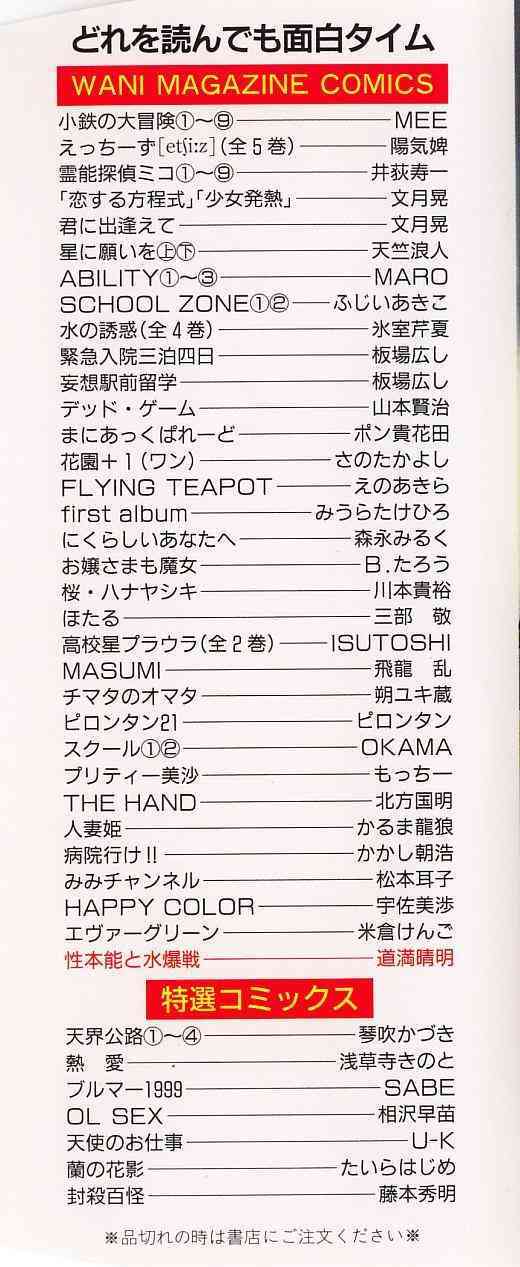 どれを読んでも面白タイム
WANI MAGAZINE COMICS
小鉄の大冒険①〜⑨――MEE
えっちーず[etʃi:z](全5巻)――陽気婢
霊能探偵ミコ①〜⑨――井荻寿一
「恋する方程式」「少女発熱」――文月晃
君に出逢えて――文月晃
星に願いを㊤㊦――天竺浪人
ABILITY①〜③――MARO
SCHOOL ZONE①②――ふじいあきこ
水の誘惑(全4巻)――氷室芹夏
緊急入院三泊四日――板場広し
妄想駅前留学――板場広し
デッド・ゲーム――山本賢治
まにあっくぱれーど――ポン貴花田
花園+1(ワン)――さのたかよし
FLYING TEAPOT――えのあきら
first album――みうらたけひろ
にくらしいあなたへ――森永みるく
お嬢さまも魔女――B.たろう
桜・ハナヤシキ――川本貴裕
ほたる――三部 敬
高校星プラウラ(全2巻)――ISUTOSHI
MASUMI――飛龍 乱
チマタのオマタ――朔ユキ蔵
ピロンタン21――ピロンタン
スクール①②――OKAMA
プリティー美沙――もっちー
THE HAND――北方国明
人妻姫――かるま龍狼
病院行け!!――かかし朝浩
みみチャンネル――松本耳子
HAPPY COLOR――宇佐美渉
エヴァーグリーン――米倉けんご
性本能と水爆戦――道満晴明
特選コミックス
天界公路①〜④――琴吹かづき
熱 愛――浅草寺きのと
ブルマー1999――SABE
OL SEX――相沢早苗
天使のお仕事――U-K
蘭の花影――たいらはじめ
封殺百怪――藤本秀明
※品切れの時は書店にご注文ください※